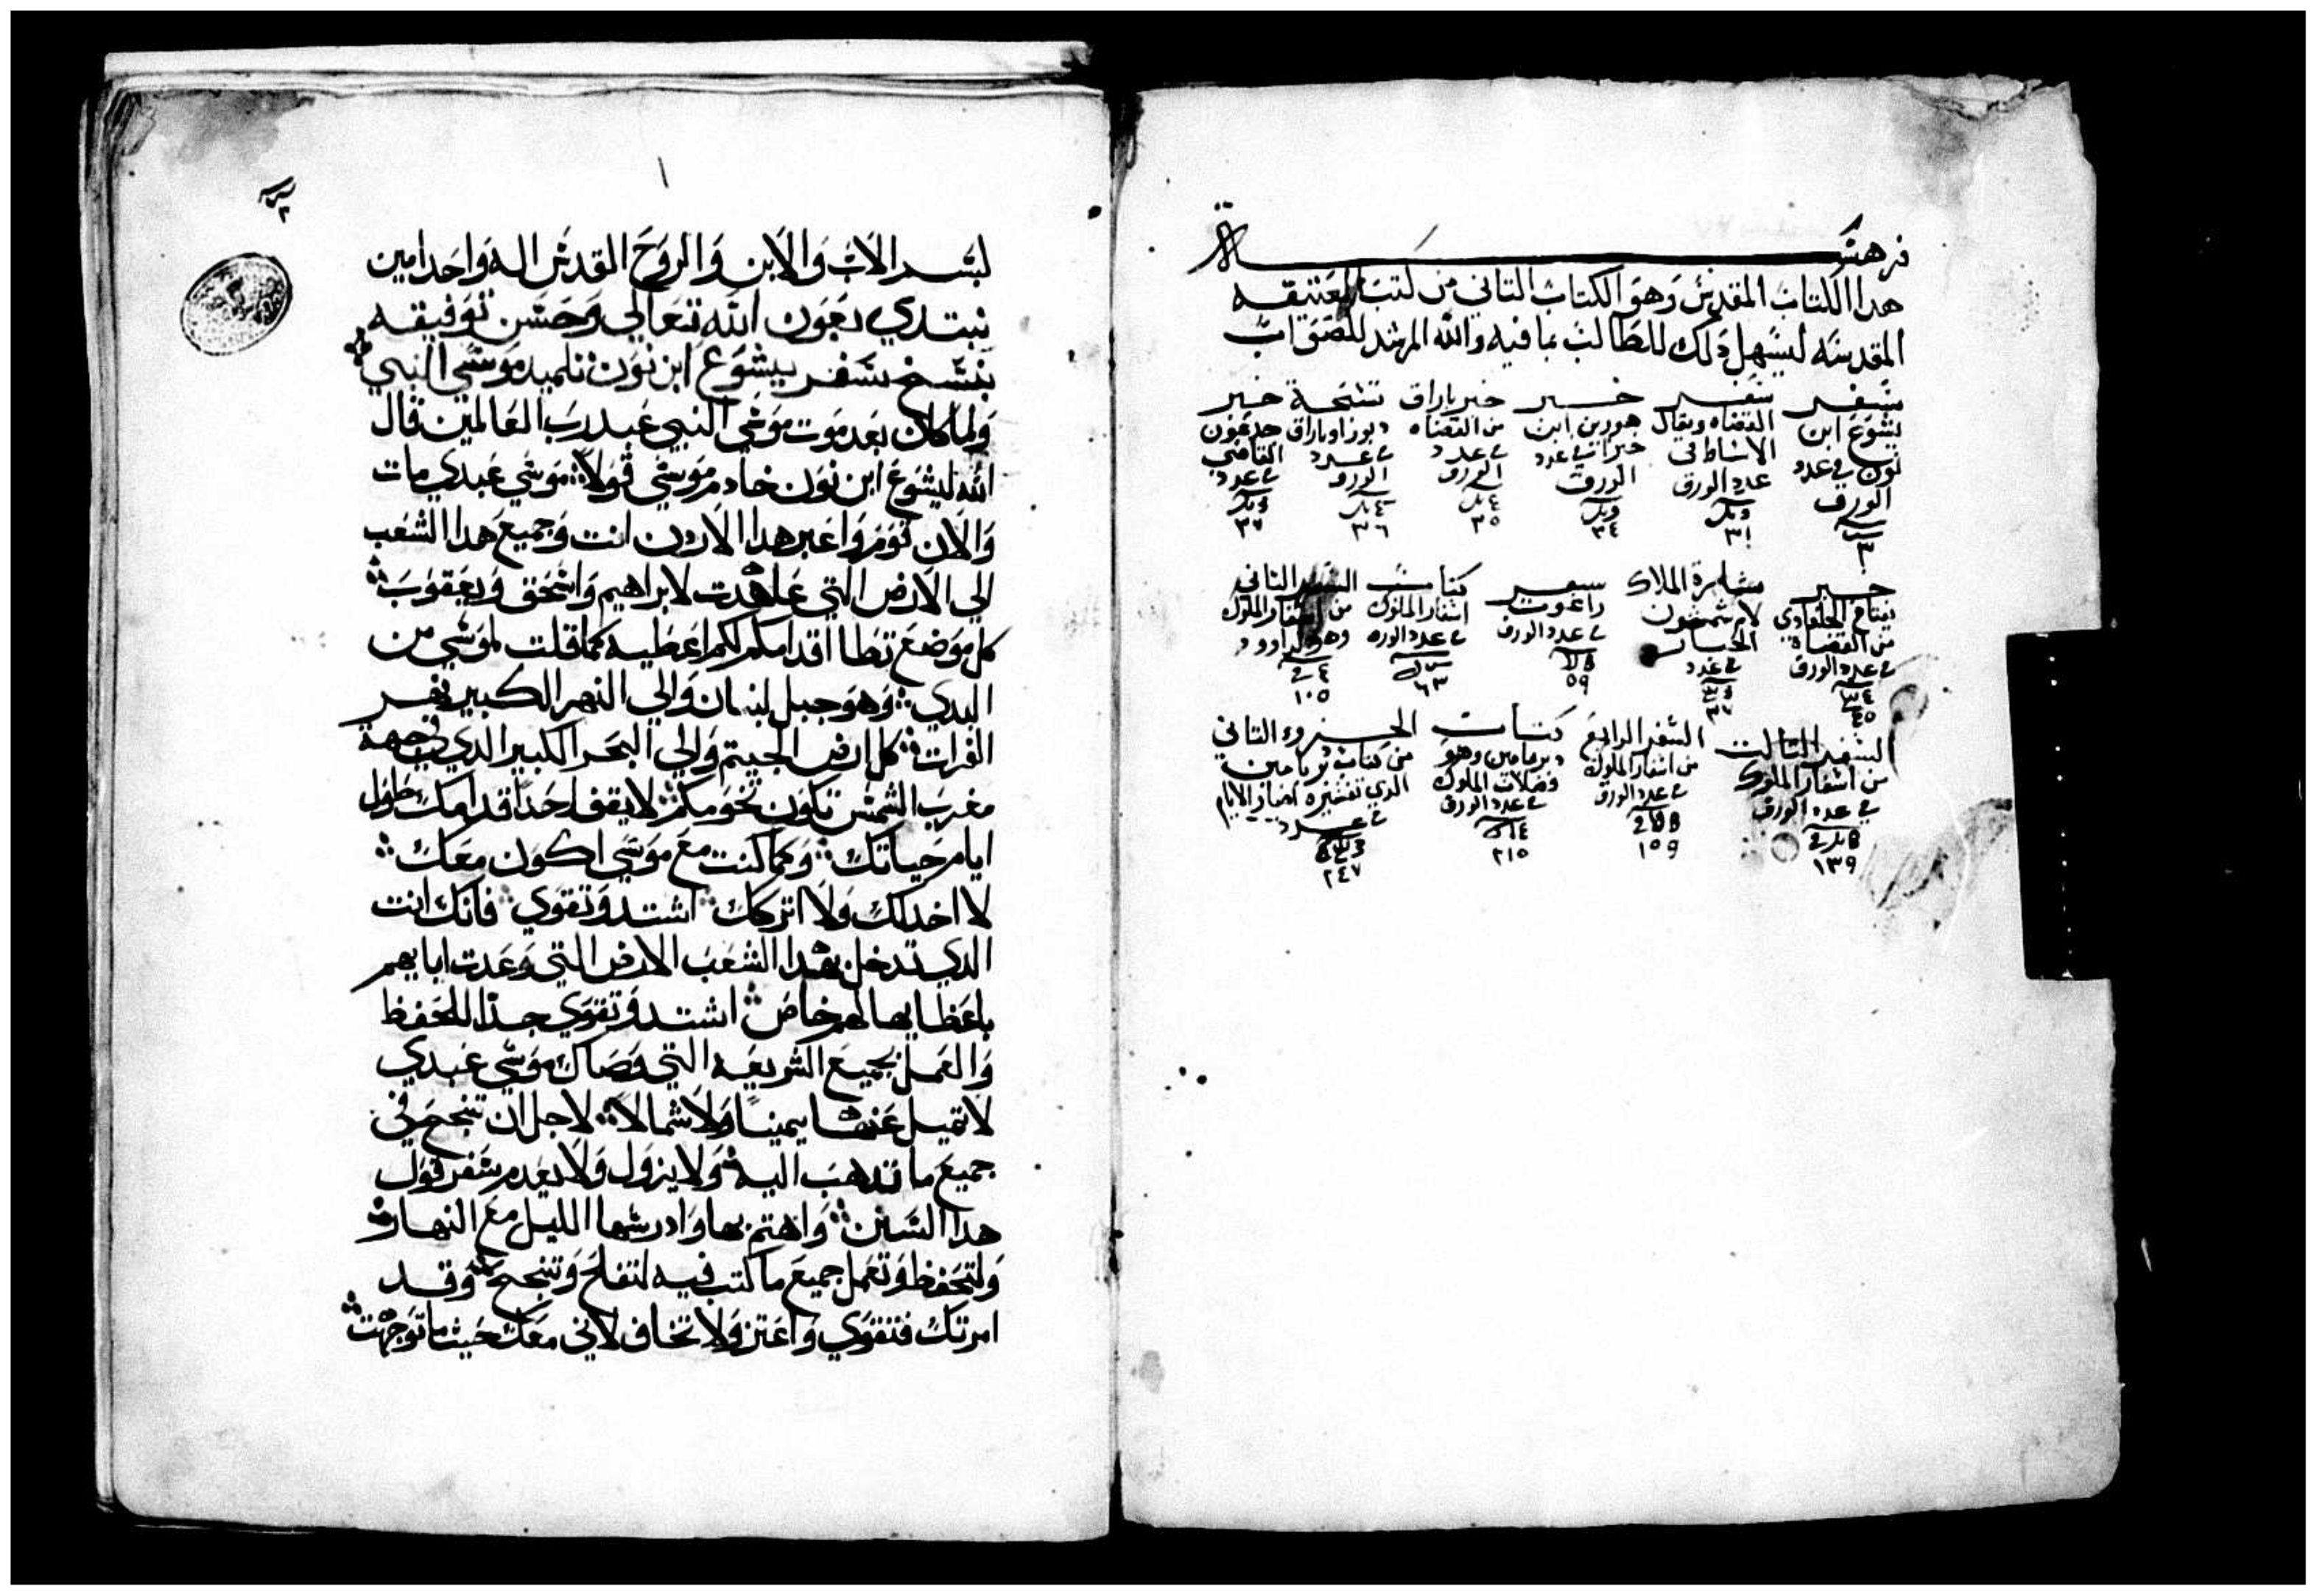 فرهسة
هدا الكتاب المقدس وهو الكتاب التاني من كتب العتيقه
المقدسه ليسهل دلك للطالب بما فيه والله المرشد للصواب
سفر
يشوع ابن
نون في عدد
الورق
٣
سفر
القضاه ويقال
الاسباط في
عدد الورق
٣١
خبر
هورين ابن
في عدد
الورق
٣٤
خبر باراق
من القضاه
في عدد
الورق
٣٥
تسبحة
دبورا وباراق
في عدد
الورق
٣٦
خبر
جدعون
القاضي
في عدد
٣٦
خبر
يفتاح الجلعادي
من القضاه
في عدد الورق
٤٥
بشارة الملاك
لام شمشون
الجبار
في عدد
سفر
راعوت
في عدد الورق
٥٩
كتاب
اسفار الملوك
في عدد الورق
٦٣
السفر التاني
من اسفار الملوك
وهو لداوود
١٠٥
السفر التالت
من اسفار الملوك
في عدد الورق
١٣٩
السفر الرابع
من اسفار الملوك
في عدد الورق
١٥٩
كتاب
وهو
فضلات الملوك
في عدد الورق
٢١٥
الجزوء التاني
من كتاب
الدي تفسيره اخبار الايام
في عدد
٢٤٧
١
بسم الاب والابن والروح القدس اله واحد امين
نبتدي بعون الله تعالي وحسن توفيقه
بنسخ سفر ييشوع ابن نون تلميد موسي النبي
ولما كان بعد موت موسي النبي عبد رب العالمين قال
الله ليشوع ابن نون خادم موسي قولا موسي عبدي مات
والان قوم واعبر هدا الاردن انت وجميع هدا الشعب
الي الارض التي عاهدت لابراهيم واسحق ويعقوب
كل موضع تطا اقدامكم لكم اعطيه كما قلت لموسي من
البدي وهو جبل لبنان والي النهر الكبير نهر
الفرات كل ارض الجيتم والي البحر الكبير الدي في جهة
مغرب الشمس تكون تخومكم لا يقف احدا قدامك بطول
ايام حياتك وكما كنت مع موسي اكون معك
لا اخدلك ولا اتركك اشتد وتقوي فانك انت
الدي تدخل بهدا الشعب الارض التي وعدت ابايهم
باعطايها لهم خاص اشتد وتقوي جدا للحفظ
والعمل بجميع الشريعه التي وصاك موسي عبدي
لا تميل عنها يمينا ولا شمالا لاجل ان تنجح في
جميع ما تدهب اليه ولا يزول ولا يعدم سفر قول
هدا السنن واهتم بها وادرسها الليل مع النهار
ولتحفظ وتعمل جميع ما كتب فيه لتفلح وتنجح وقد
امرتك فتقوي واعتز ولا تخاف لاني معك حيث ما توجهت